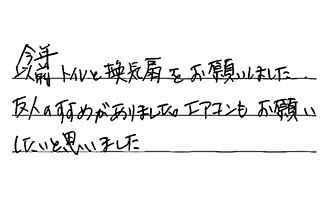 今年
以前トイレと換気扇をお願いしました.
友人のすすめがありました。エアコンもお願い
したいと思いました